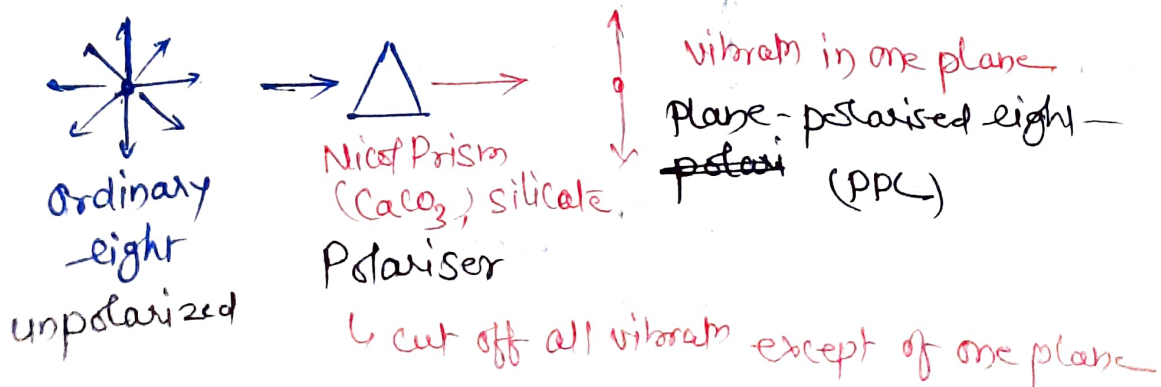 ordinary
light
unpolarized
Nicol Prism
(CaCO3, silicate.
Polariser
↳ cut off all vibratn except of one plane
vibratn in one plane
plane-polarised light-
polari (PPL)